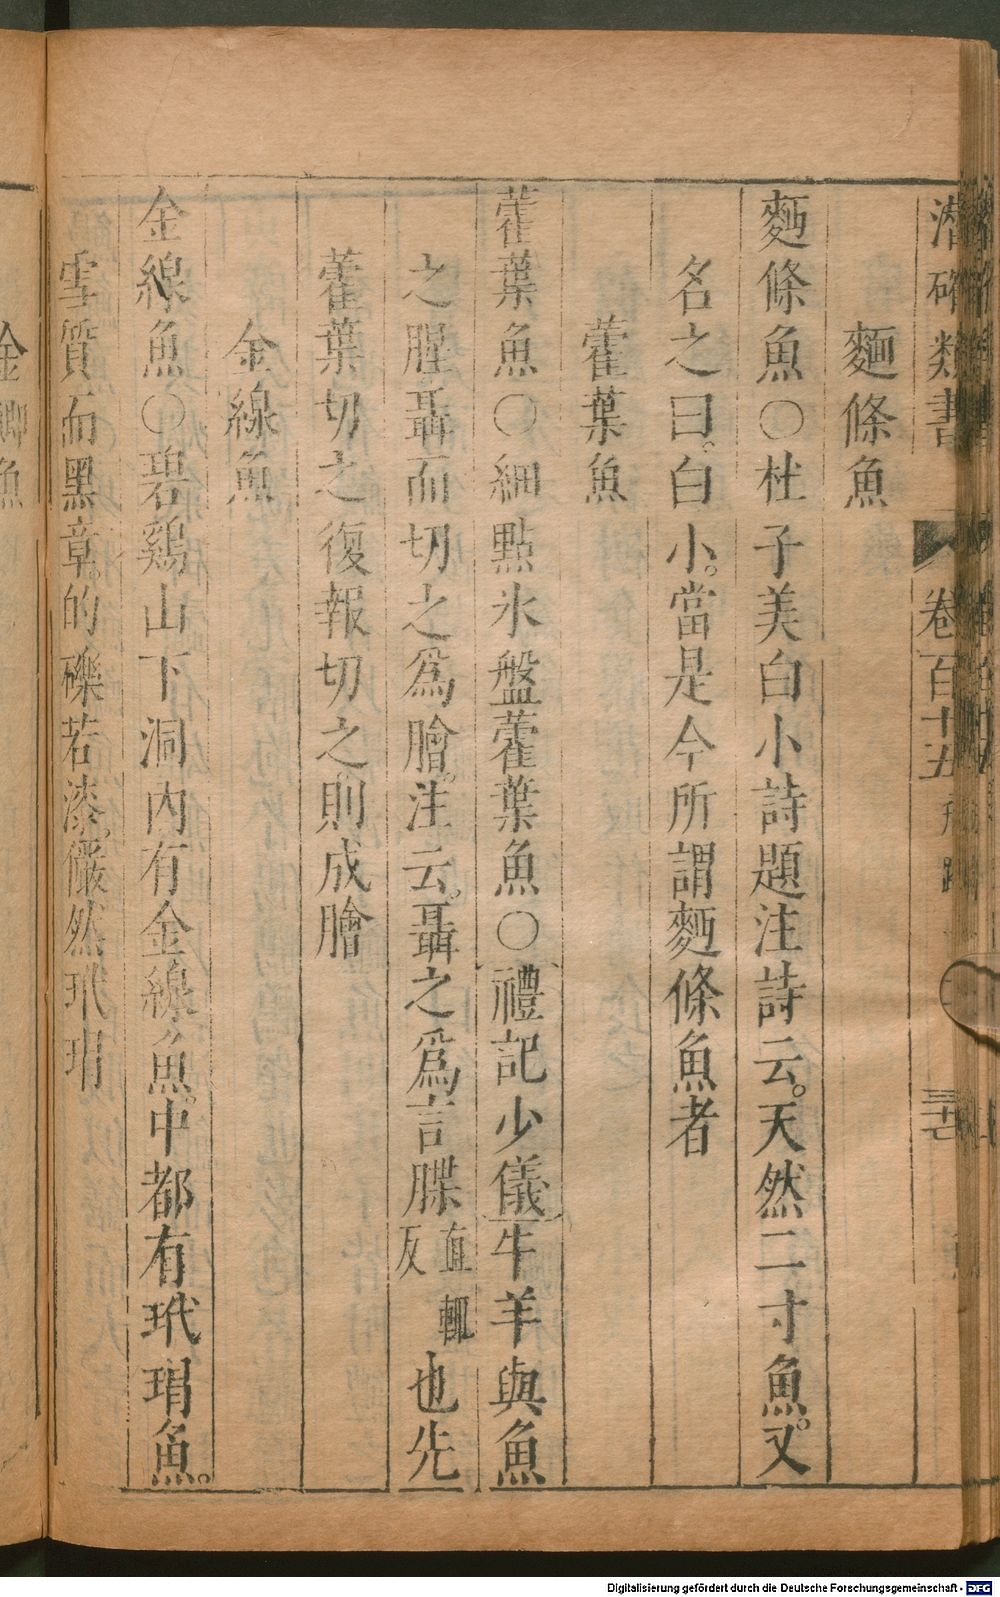 潛確類書 卷百十五 三十七
麵條魚
麪條魚○杜子美白小詩題注詩云。天然二寸魚。又
名之曰。白小。當是今所謂麪條魚者
藿葉魚
藿葉魚○細點氷盤藿葉魚○禮記少儀牛羊與魚
之腥聶而切之爲膾。注云。聶之爲言牒直輒反也先
藿葉切之復報切之則成膾
金線魚
金線魚○碧鷄山下洞內有金線魚。中都有玳瑁魚。
雪質而黑章。的礫若漆。儼然玳瑁
金鯽魚
Digitalisierung gefördert durch die Deutsche Forschungsgemeinschaft - DFG